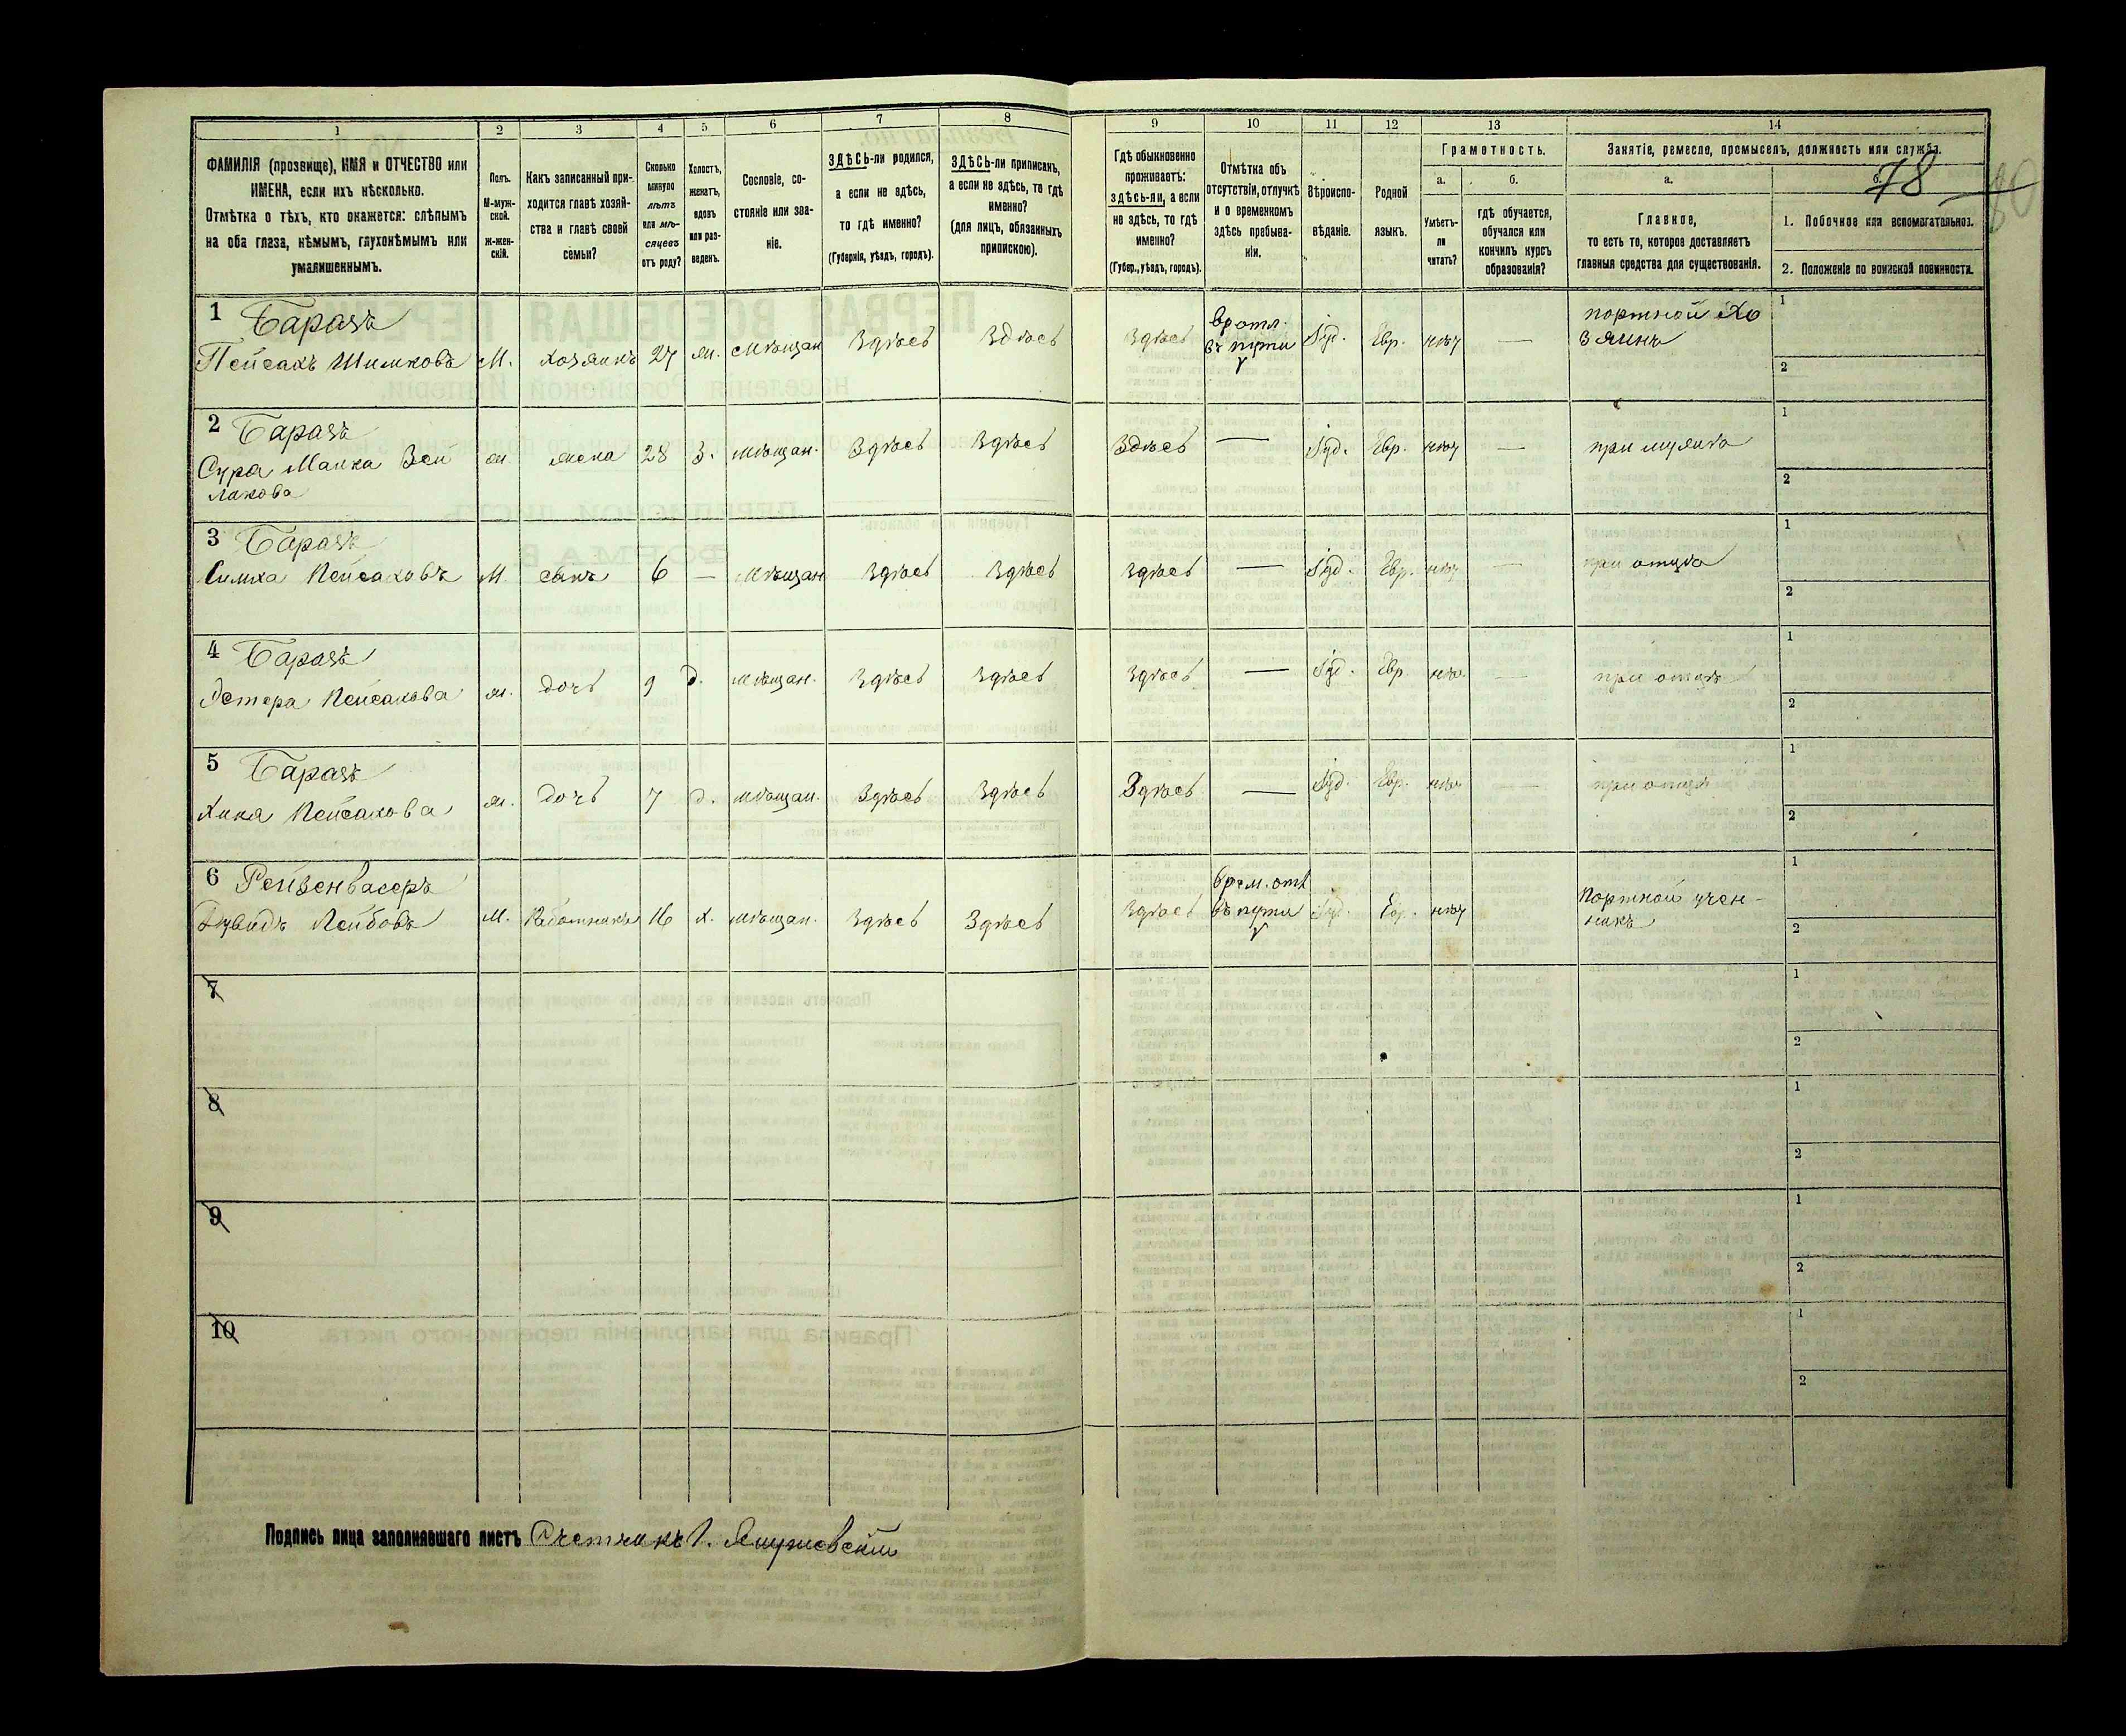 1 2 3 4 5 6 7 8 9 10 11 12 13 14
ФАМИЛІЯ (прозвище), ИМЯ и ОТЧЕСТВО или
ИМЕНА, если ихъ нѣсколько.
Отмѣтка о тѣхъ, кто окажется: слѣпымъ
на оба глаза, нѣмымъ, глухонѣмымъ или
умалишеннымъ.
Полъ.
М-муж-
ской.
ж-жен-
скій.
Какъ записанный при-
ходится главѣ хозяй-
ства и главѣ своей
семьи?
Сколько
минуло
лѣтъ
или мѣ-
сяцевъ
отъ роду?
Холостъ,
женатъ,
вдовъ
или раз-
веденъ.
Сословіе, со-
стояніе или зва-
ніе.
ЗДѢСЬ-ли родился,
а если не здѣсь,
то гдѣ именно?
(Губернія, уѣздъ, городъ).
ЗДѢСЬ-ли приписанъ,
а если не здѣсь, то гдѣ
именно?
(для лицъ, обязанныхъ
припискою).
Гдѣ обыкновенно
проживаетъ:
здѣсь-ли, а если
не здѣсь, то гдѣ
именно?
(Губер., уѣздъ, городъ).
Отмѣтка объ
отсутствіи, отлучкѣ
и о временномъ
здѣсь пребыва-
ніи.
Вѣроиспо-
вѣданіе.
Родной
языкъ.
Грамотность.
а.
Умѣетъ-
ли
читать?
б.
гдѣ обучается,
обучался или
кончилъ курсъ
образованія?
Занятіе, ремесло, промыселъ, должность или служба.
78
а.
Главное,
то есть то, которое доставляетъ
главныя средства для существованія.
б.
1. Побочное или вспомогательное.
2. Положеніе по воинской повинности.
1 Баразъ
Пейсахъ Шимховъ М. хозяинъ 27 ж. мѣщан Здѣсь Здѣсь Здѣсь
въ пути Іуд. Евр. нѣт —
портной Хо
зяинъ
1
2
2 Баразъ
Сура Малка Зей
ликова
ж. жена 28 З. мѣщан. Здѣсь Здѣсь Здѣсь — Іуд. Евр. нѣт — при мужѣ
1
2
3 Баразъ
Симха Пейсаховъ М. сынъ 6 — мѣщан Здѣсь Здѣсь Здѣсь — Іуд. Евр. нѣт — при отцѣ
1
2
4 Баразъ
Эстера Пейсахова ж. дочь 9 д. мѣщан. Здѣсь Здѣсь Здѣсь — Іуд. Евр. нѣт — при отцѣ
1
2
5 Баразъ
Хина Пейсахова ж. дочь 7 д. мѣщан. Здѣсь Здѣсь Здѣсь — Іуд. Евр. нѣт — при отцѣ
1
2
6 Рейзенвасеръ
Дувидъ Лейбовъ М. Работникъ 16 х. мѣщан. Здѣсь Здѣсь Здѣсь
врем. отл
въ пути Іуд. Евр. нѣт
Портной учен-
никъ
1
2
7
1
2
8
1
2
9
1
2
10
1
2
Подпись лица заполнявшаго листъ Счетчикъ